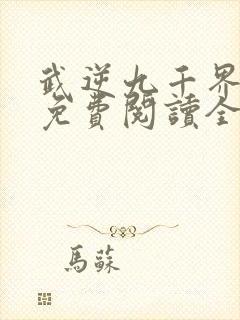 武逆九千界
免費閱讀全
馬蘇